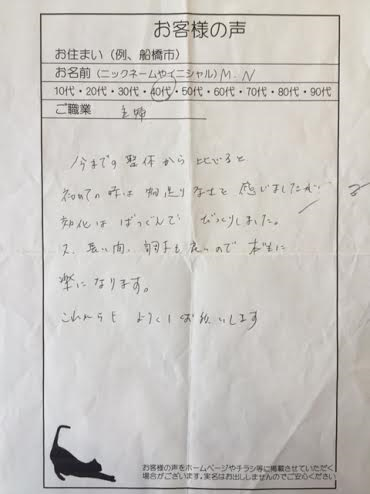 お客様の声
お住まい（例、船橋市）
お名前（ニックネームやイニシャル）M.N
10代・20代・30代・40代・50代・60代・70代・80代・90代
ご職業 主婦
今までの整体から比べると
初めての時は物足りなさを感じましたが、
効化はばつぐんでびっくりしました。
又、長い間、調子も良いので本当に
楽になります。
これからもよろしくお願いします
お客様の声をホームページやチラシ等に掲載させていただく
場合がございます。実名はお出ししませんのでご安心ください